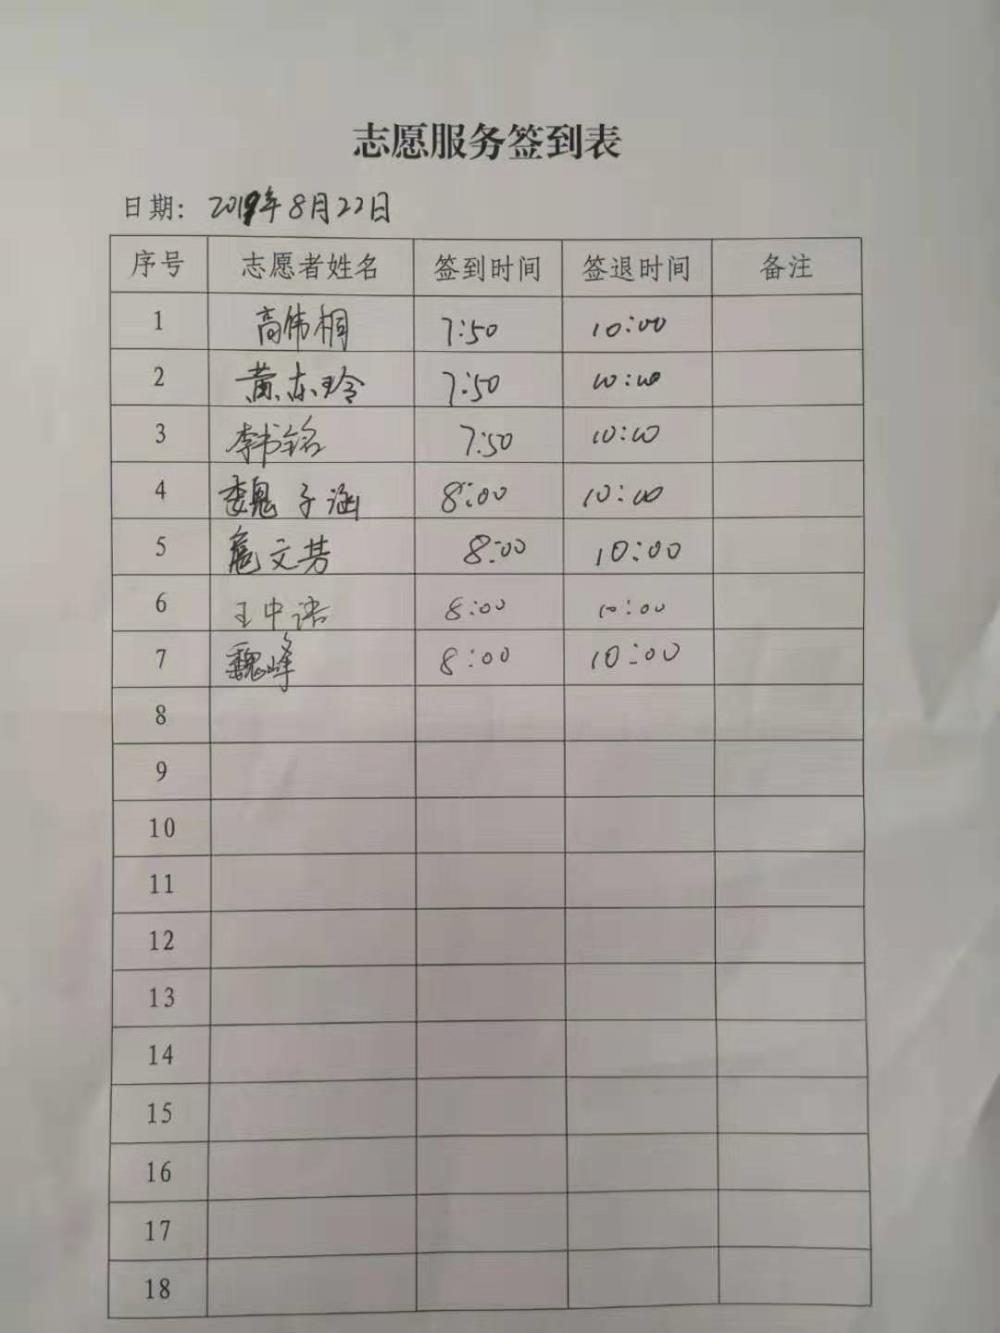 志愿服务签到表
日期: 2019年8月22日
序号 志愿者姓名 签到时间 签退时间 备注
1 高伟桐 7:50 10:00
2 黄东玲 7:50 10:00
3 李书铭 7:50 10:00
4 魏子涵 8:00 10:00
5 文芳 8:00 10:00
6 王中诺 8:00 10:00
7 魏峰 8:00 10:00
8
9
10
11
12
13
14
15
16
17
18